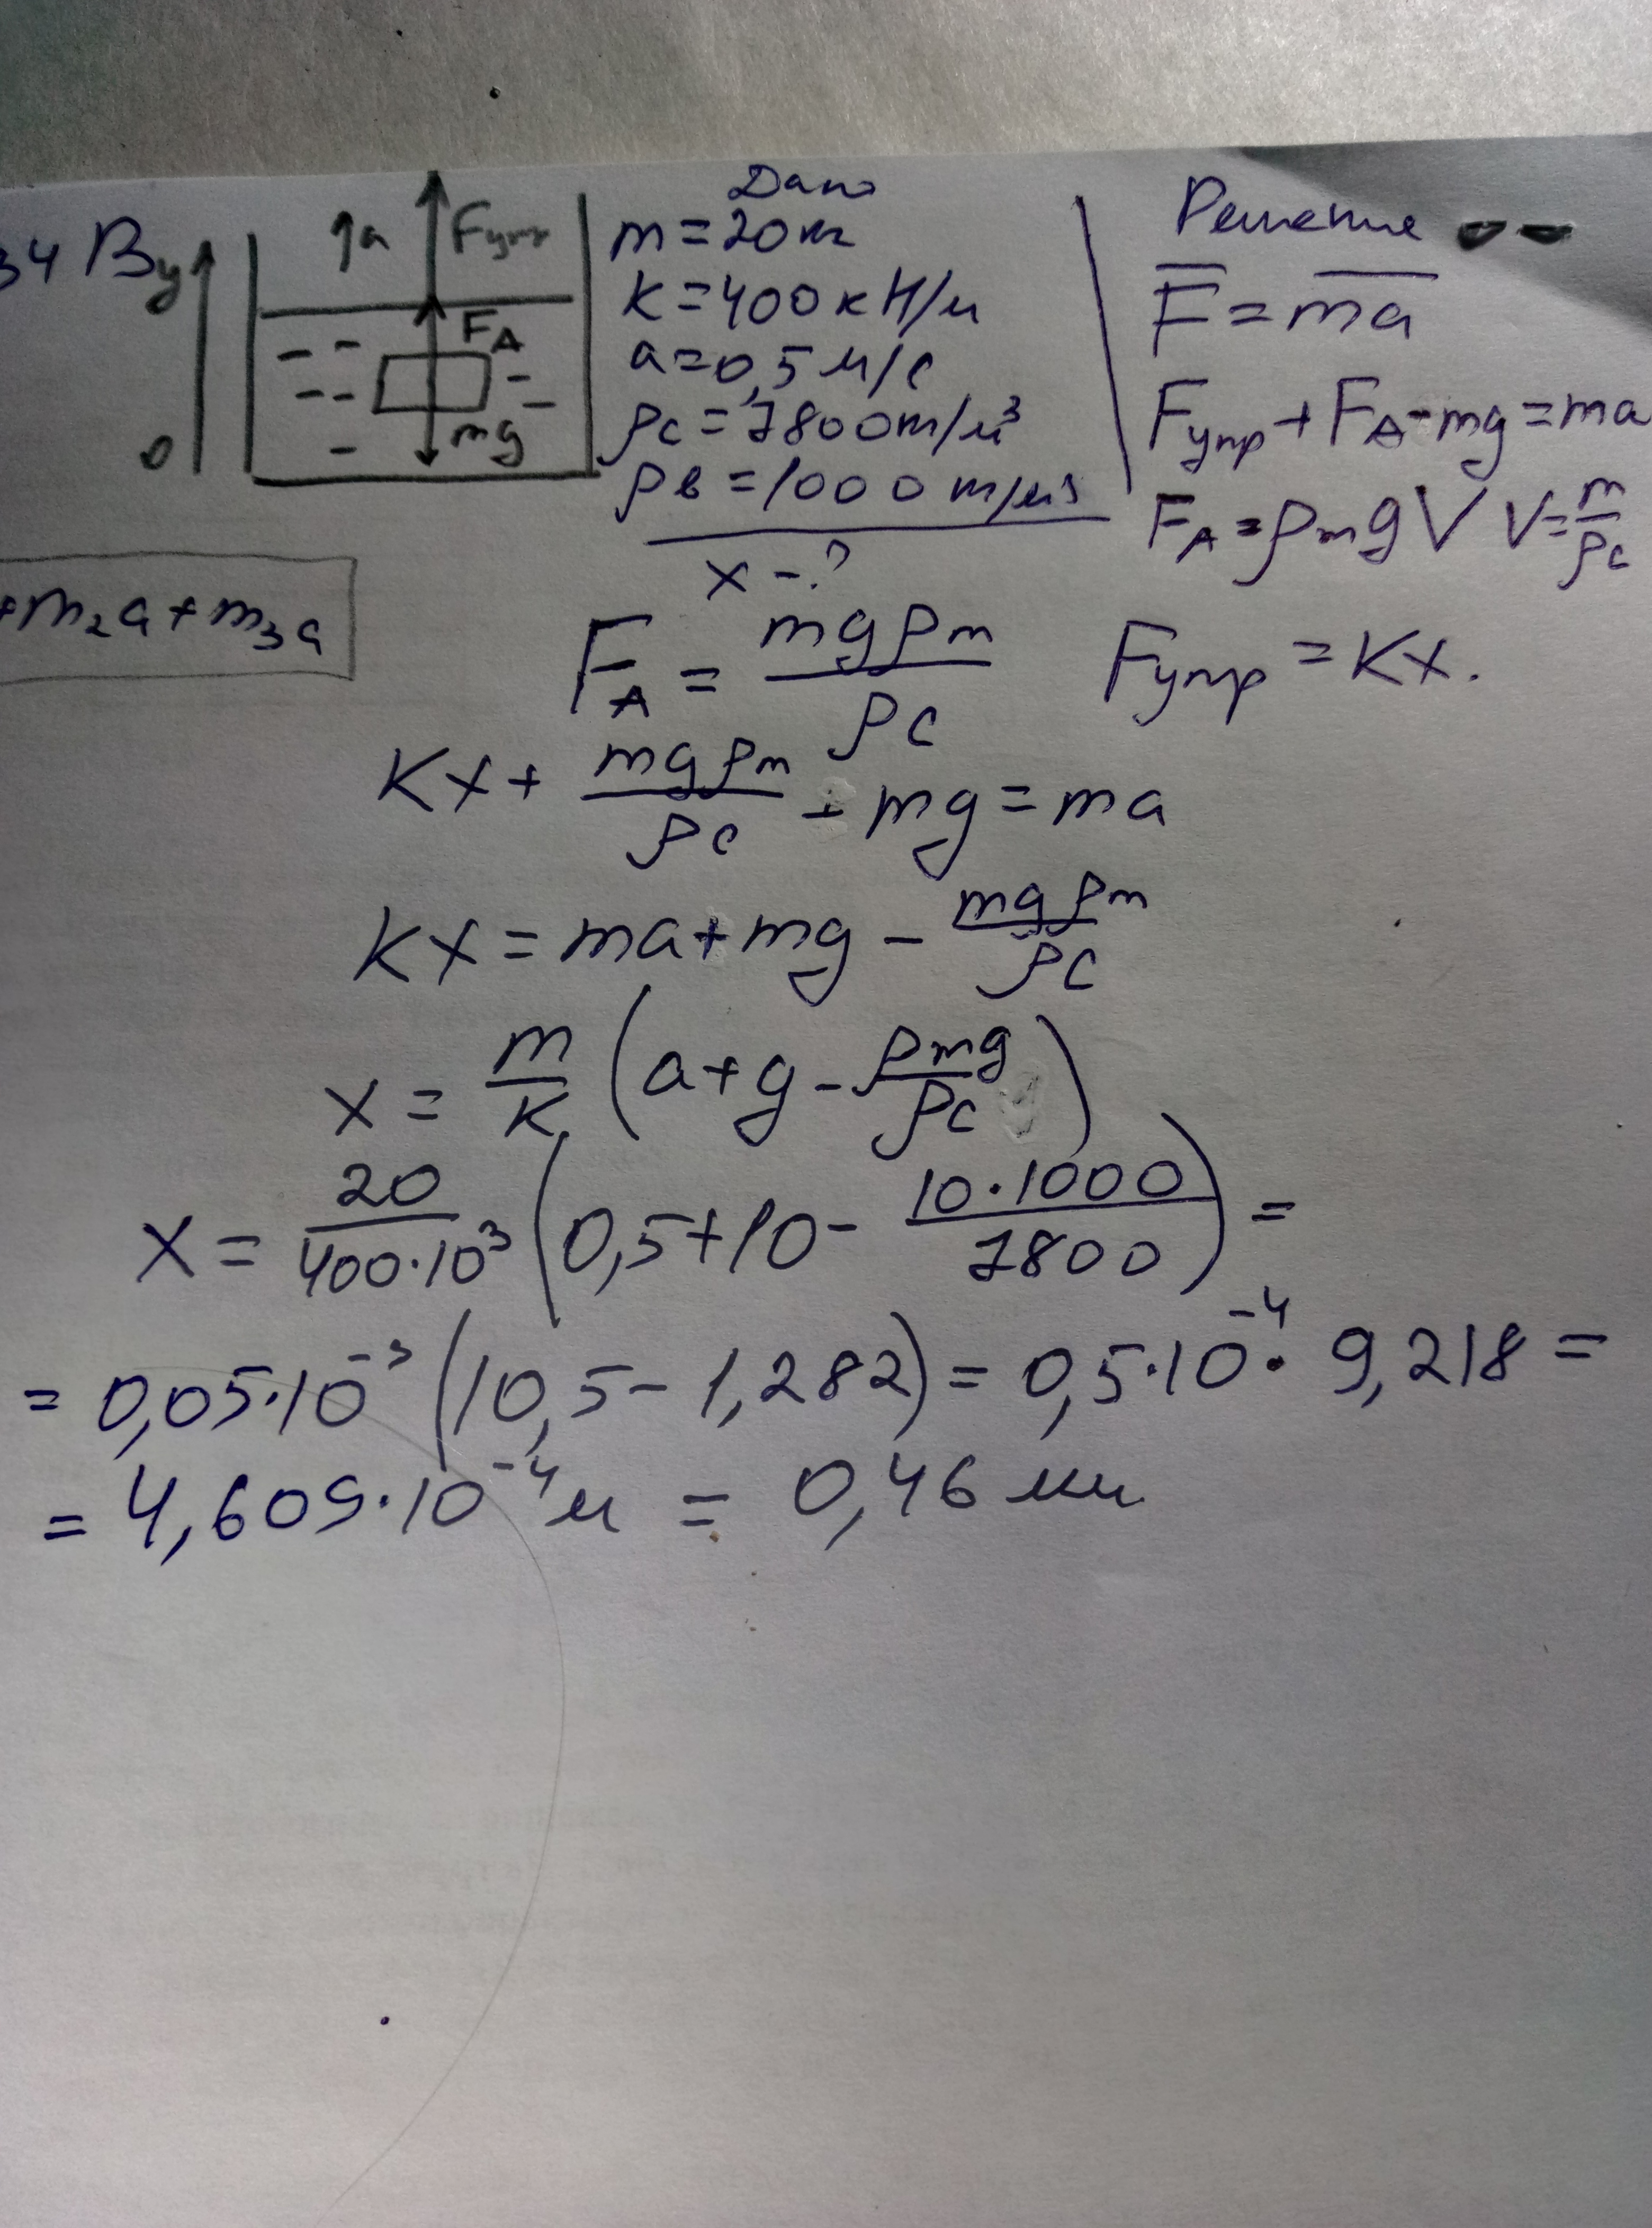 34 В
y
0
a
Fупр
FA
mg
Дано
m = 20 кг
K = 400 кН/м
a = 0,5 м/с
ρc = 7800 т/м³
ρв = 1000 т/м³
x - ?
Решение
F = ma
Fупр + FA - mg = ma
FA = ρm g V V = m/ρc
+ m₂a + m₃a
FA = mgρm/ρc Fупр = Kx.
Kx + mgρm/ρc - mg = ma
Kx = ma + mg - mgρm/ρc
x = m/K (a + g - ρmg/ρc)
x = 20/400·10³ (0,5 + 10 - 10·1000/7800) =
= 0,05·10⁻³ (10,5 - 1,282) = 0,5·10⁻⁴ · 9,218 =
= 4,609·10⁻⁴ м = 0,46 мм